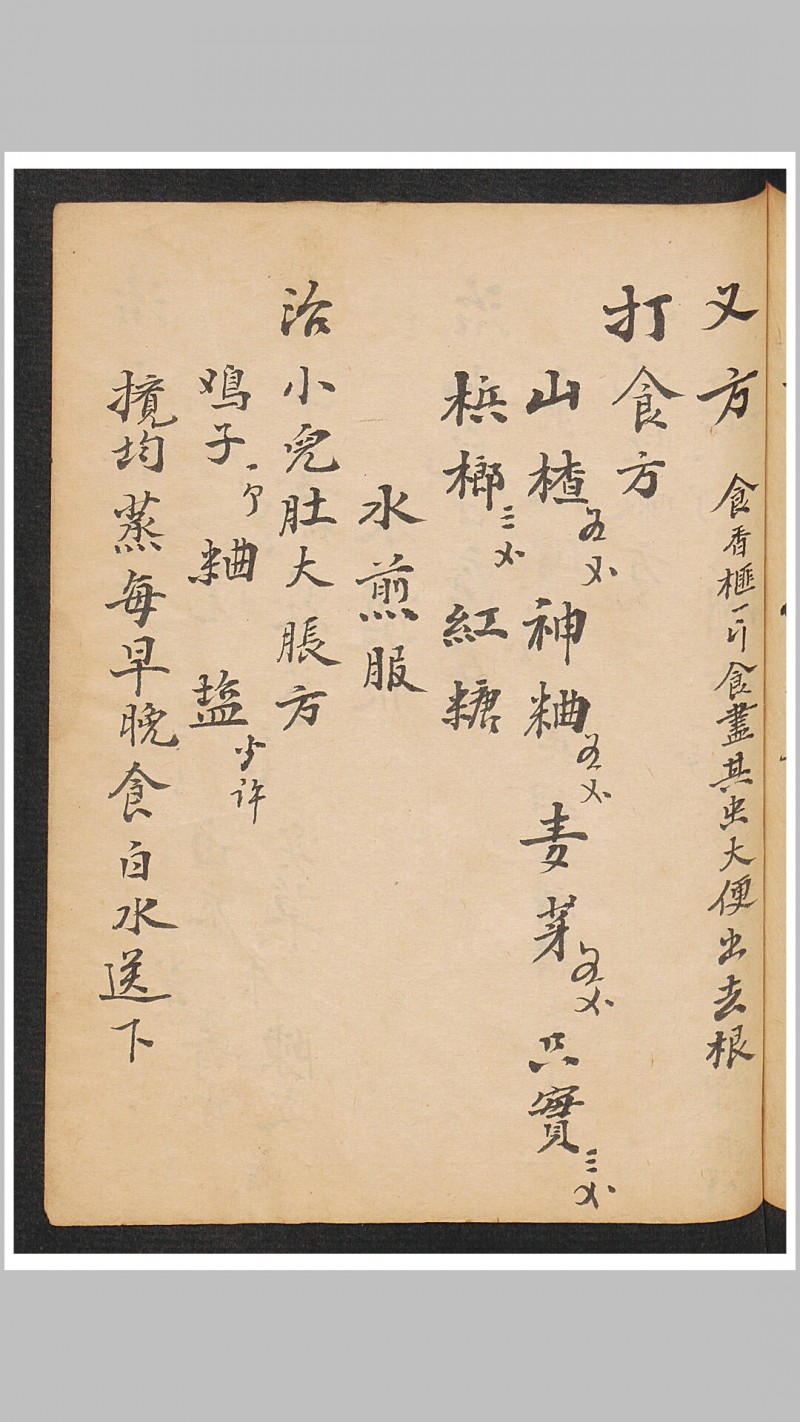 又方 食香榧一斤食盡其虫大便出去根
打食方
山楂五분 神粬五分 麦芽五分 只實三分
梹榔三分 紅糖
水煎服
治小兒肚大脹方
鸡子一个 粬 塩少许
搅均蒸每早晚食白水送下